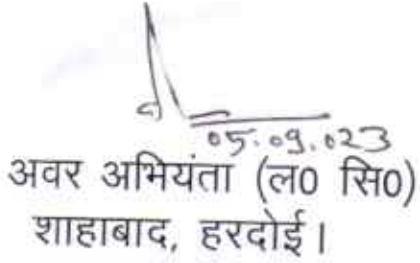 05.09.023
अवर अभियंता (ल0 सि0)
शाहाबाद, हरदोई।